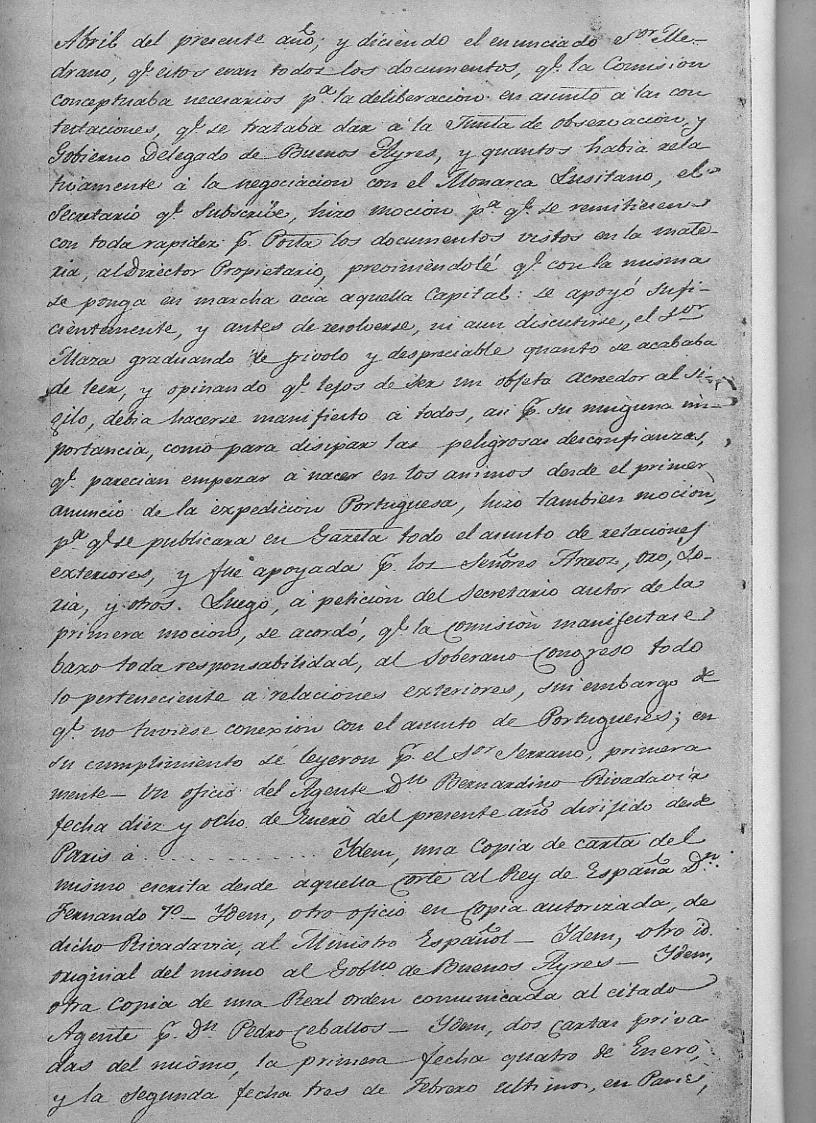 Abril del presente año; y diciendo el enunciado Sor. Me-
drano, qe. estos eran todos los documentos, qe. la Comision
conceptuaba necesarios pa. la deliberacion en asunto à las con
testaciones, qe. se trataba dar à la Junta de observacion, y
Gobierno Delegado de Buenos Ayres, y quantos habia rela
tivamente à la negociacion con el Monarca Lusitano, el
Secretario qe. Subscribe, hizo mocion pa. qe. se remitiesen
con toda rapidez p. Posta los documentos vistos en la mate-
ria, al Director Propietario, previniendole qe. con la misma
se ponga en marcha acia aquella Capital: se apoyó sufi-
cientemente, y antes de resolverse, ni aun discutirse, el Sor.
Maza graduando de frivolo y despreciable quanto se acababa
de leer, y opinando qe. lejos de ser un objeto acreedor al si-
gilo, debia hacerse manifiesto a todos, asi p. su ninguna im-
portancia, como para disipar las peligrosas desconfianzas,
qe. parecian empezar à nacer en los animos desde el primer
anuncio de la expedicion Portuguesa, hizo tambien mocion,
pa. qe. se publicara en Gazeta todo el asunto de relaciones
exteriores, y fue apoyada p. los Señores Araoz, Oro, Lo-
ria, y otros. Luego, à peticion del Secretario autor de la
primera mocion, se acordó, qe. la Comision manifestase
baxo toda responsabilidad, al Soberano Congreso todo
lo perteneciente a relaciones exteriores, sin embargo de
qe. no tuviese conexion con el asunto de Portugueses; en
su cumplimiento se leyeron p. el Sor. Serrano, primera
mente - Un oficio del Agente Dn. Bernardino Rivadavia
fecha diez y ocho de Enero del presente año dirijido desde
Paris à . . . . . . . . . . . . . Ydem, una Copia de carta del
mismo escrita desde aquella Corte al Rey de España Dn.
Fernando 7o. - Ydem, otro oficio en Copia autorizada, de
dicho Rivadavia, al Ministro Español - Ydem, otro id.
original del mismo al Gobno. de Buenos Ayres - Ydem,
otra Copia de una Real orden comunicada al citado
Agente p. Dn. Pedro Ceballos - Ydem, dos cartas priva
das del mismo, la primera fecha quatro de Enero,
y la segunda fecha tres de Febrero ultimos, en Paris,